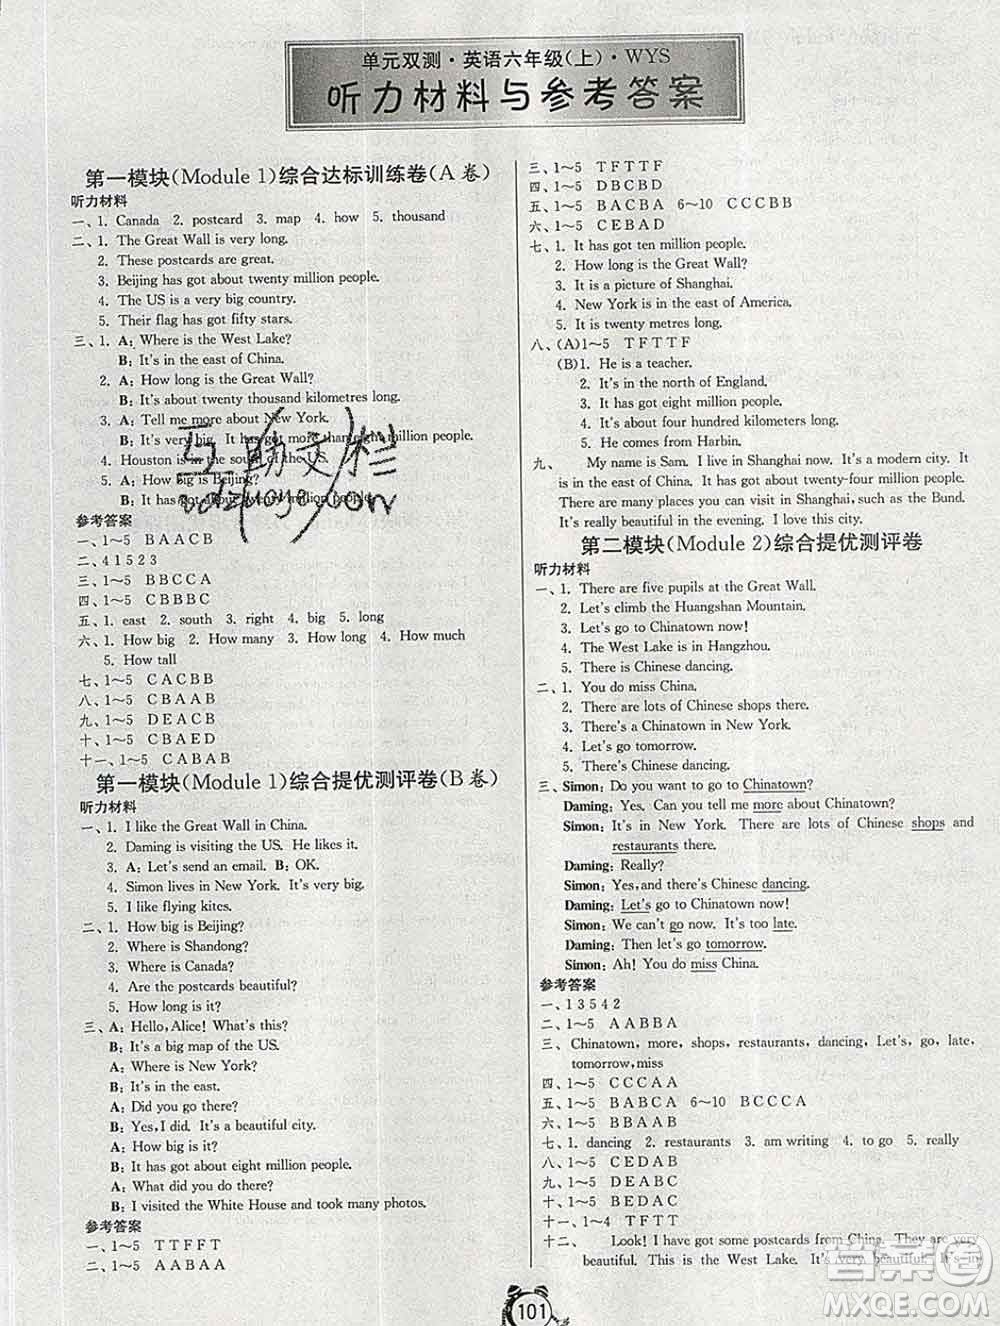 单元双测·英语六年级(上)·WYS
听力材料与参考答案
第一模块(Module 1)综合达标训练卷(A卷)
听力材料
一、1. Canada 2. postcard 3. map 4. how 5. thousand
二、1. The Great Wall is very long.
2. These postcards are great.
3. Beijing has got about twenty million people.
4. The US is a very big country.
5. Their flag has got fifty stars.
三、1. A: Where is the West Lake?
B: It's in the east of China.
2. A: How long is the Great Wall?
B: It's about twenty thousand kilometres long.
3. A: Tell me more about New York.
B: It's very big. It has got more than eight million people.
4. Houston is in the south of the US.
5. A: How big is Beijing?
B: It has got about twenty million people.
参考答案
一、1～5 B A A C B
二、4 1 5 2 3
三、1～5 B B C C A
四、1～5 C B B B C
五、1. east 2. south 3. right 4. big 5. long
六、1. How big 2. How many 3. How long 4. How much
5. How tall
七、1～5 C A C B B
八、1～5 C B A A B
九、1～5 D E A C B
十、1～5 C B A E D
十一、1～5 C A B A B
第一模块(Module 1)综合提优测评卷(B卷)
听力材料
一、1. I like the Great Wall in China.
2. Daming is visiting the US. He likes it.
3. A: Let's send an email. B: OK.
4. Simon lives in New York. It's in the east.
5. I like flying kites.
二、1. How big is Beijing?
2. Where is Shandong?
3. Where is Canada?
4. Are the postcards beautiful?
5. How long is it?
三、A: Hello, Alice! What's this?
B: It's a big map of the US.
A: Where is New York?
B: It's in the east.
A: Did you go there?
B: Yes, I did. It's a beautiful city.
A: How big is it?
B: It has got about eight million people.
A: What did you do there?
B: I visited the White House and took many photos.
参考答案
一、1～5 T T F F T
二、1～5 A A B A A
三、1～5 T F T T F
四、1～5 D B C B D
五、1～5 B A C B A 6～10 C C C B B
六、1～5 C E B A D
七、1. It has got ten million people.
2. How long is the Great Wall?
3. It is a picture of Shanghai.
4. New York is in the east of America.
5. It is twenty metres long.
八、(A)1～5 T F T T F
(B)1. He is a teacher.
2. It's in the north of England.
3. It has got eight million people.
4. It's about four hundred kilometers long.
5. He comes from Harbin.
九、 My name is Sam. I live in Shanghai now. It's a modern city. It
is in the east of China. It has got about twenty-four million people.
There are many places you can visit in Shanghai, such as the Bund.
It's really beautiful in the evening. I love this city.
第二模块(Module 2)综合提优测评卷
听力材料
一、1. There are five pupils at the Great Wall.
2. Let's climb the Huangshan Mountain.
3. Let's go to Chinatown now!
4. The West Lake is in Hangzhou.
5. There is Chinese dancing.
二、1. You do miss China.
2. There are lots of Chinese shops there.
3. There's a Chinatown in New York.
4. Let's go tomorrow!
5. There's Chinese dancing.
三、Simon: Do you want to go to Chinatown?
Daming: Yes. Can you tell me more about Chinatown?
Simon: It's in New York. There are lots of Chinese shops and
restaurants there.
Daming: Really?
Simon: Yes, and there's Chinese dancing.
Daming: Let's go to Chinatown now!
Simon: We can't go now. It's too late.
Daming: Then let's go tomorrow.
Simon: Ah! You do miss China.
参考答案
一、1 3 5 4 2
二、1～5 A A B B A
三、Chinatown, more, shops, restaurants, dancing, Let's, go, late,
tomorrow, miss
四、1～5 C C C A A
五、1～5 B A B C A 6～10 B C C C A
六、1～5 B B A A B
七、1. dancing 2. restaurants 3. am writing 4. to go 5. really
八、1～5 C E D A B
九、1～5 D E A B C
十、1～5 B E D A C
十一、1～4 T F T T
十二、 Look! I have got some postcards from China. They are very
beautiful. This is the West Lake. It's very beautiful. It's in
101
答案圈
MXQE.COM